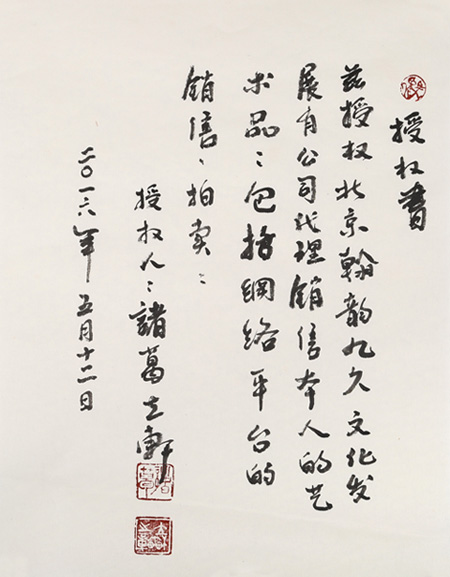 授权書
兹授权北京翰韵九久文化发
展有公司代理銷售本人的艺
术品：包括網络平台的
銷售、拍卖：
授权人：諸葛立軒
二〇一六年五月十二日